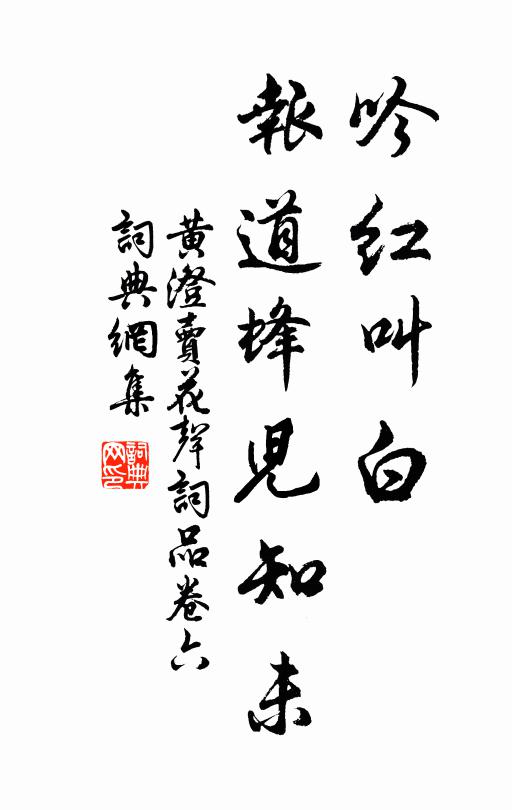 吟紅叫白
報道蜂児知未
黃澄賣花聲詞品卷六
詞典網集
詞典网印